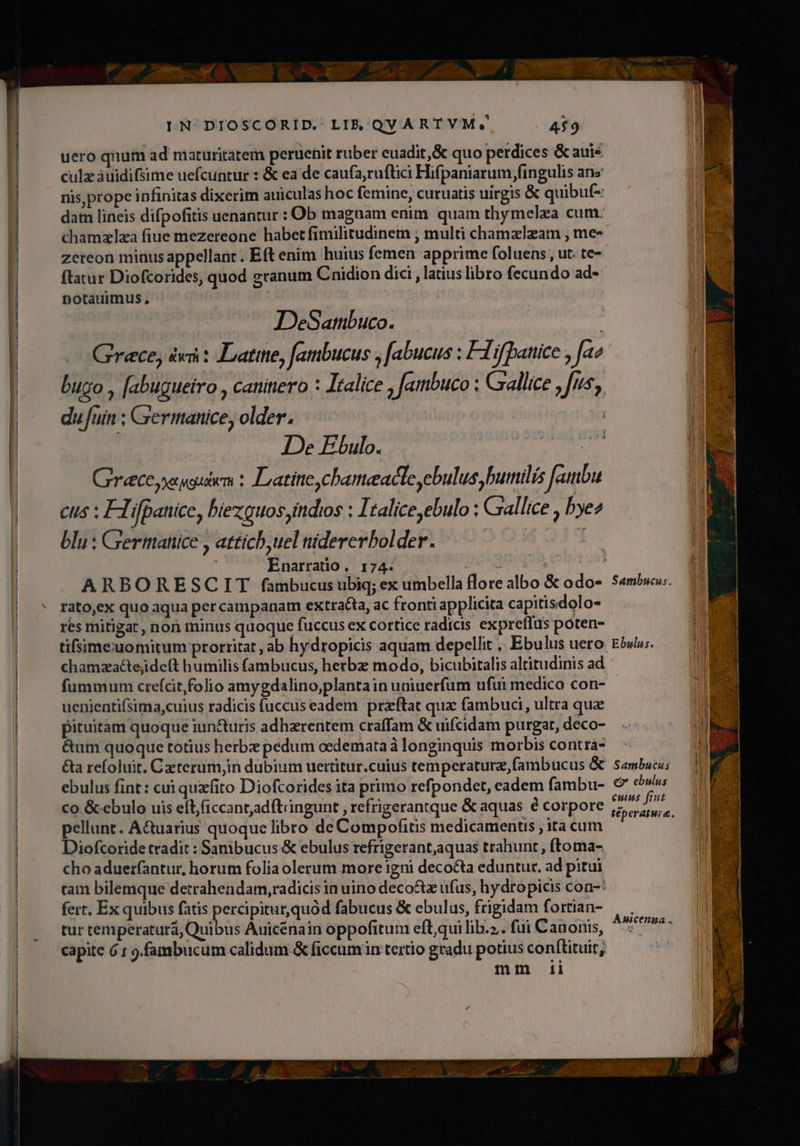 IN DIOSCORID. LIB. QVARTVM. 459
uero quum ad maturitatem peruenit ruber euadit,& quo perdices & aui-
culæ auidiſsime ueſcuntur : & ea de cauſa,ruſtici Hiſpaniarum,ſingulis an-
nis,prope infinitas dixerim auiculas hoc femine, curuatis uirgis & quibuſ-
dam lineis diſpoſitis uenantur : Ob magnam enim quam thymelæa cum
chamælæa ſiue mezereone habet ſimilitudinem , multi chamælæam , me-
zereon minus appellant . Eſt enim huius ſemen apprime ſoluens , ut te-
ſtatur Dioſcorides, quod granum Cnidion dici , latius libro ſecundo ad-
notauimus.
DeSambuco.
Græce, ἀκτὴ : Latine, ſambucus , ſabucus : Hiſpanice , ſa-
bugo , ſabugueiro , caninero : Italice , ſambuco : Gallice , ſus,
du ſuin : Germanice, older.
De Ebulo.
Græce,χαμαιάκτη : Latine,chamæacte,ebulus,humilis ſambu
cus : Hiſpanice, hiezguos,indios : Italice,ebulo : Gallice , hye-
blu : Germanice , attich,uel nidererholder.
Enarratio. 174.
ARBORESCIT ſambucus ubiq; ex umbella flore albo & odo- Sambucus.
rato,ex quo aqua per campanam extracta, ac fronti applicita capitis dolo-
res mitigat , non minus quoque ſuccus ex cortice radicis expreſſus poten-
tiſsime uomitum prorritat , ab hydropicis aquam depellit . Ebulus uero Ebulus.
chamæacte,ideſt humilis ſambucus, herbæ modo, bicubitalis altitudinis ad
ſummum creſcit,folio amygdalino,planta in uniuerſum uſui medico con-
uenientiſsima,cuius radicis ſuccus eadem præſtat quæ ſambuci , ultra quæ
pituitam quoque iuncturis adhærentem craſſam & uiſcidam purgat, deco-
ctum quoque totius herbæ pedum œdemata à longinquis morbis contra-
cta reſoluit. Cæterum,in dubium uertitur.cuius temperaturæ,ſambucus & Sambucus
ebulus ſint : cui quæſito Dioſcorides ita primo reſpondet, eadem ſambu- & ebulus
co & ebulo uis eſt,ſiccant,adſtringunt , refrigerantque & aquas è corpore cuius ſint
pellunt . Actuarius quoque libro de Compoſitis medicamentis , ita cum tēperaturæ.
Dioſcoride tradit : Sambucus & ebulus refrigerant,aquas trahunt , ſtoma-
cho aduerſantur, horum folia olerum more igni decocta eduntur. ad pitui
tam bilemque detrahendam,radicis in uino decoctæ uſus, hydropicis con-
fert. Ex quibus ſatis percipitur,quòd ſabucus & ebulus, frigidam ſortian-
tur temperaturā, Quibus Auicēna in oppoſitum eſt,qui lib.2. ſui Canonis, Auicenna.
capite 619.ſambucum calidum & ſiccum in tertio gradu potius conſtituit,
mm ii